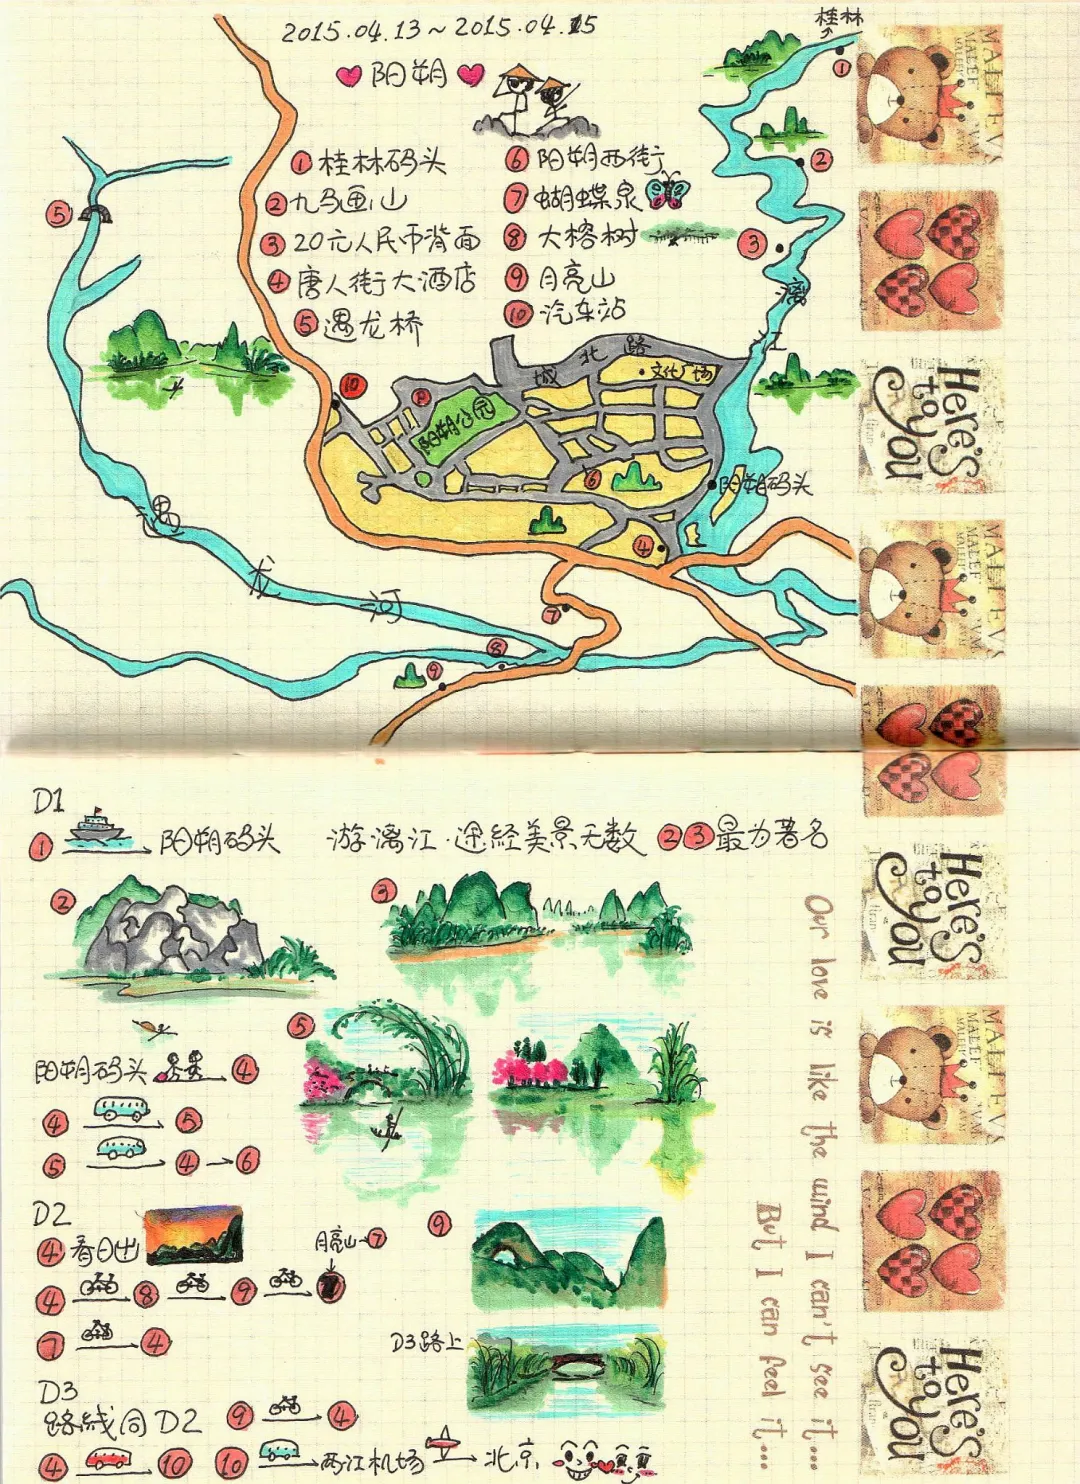 2015.04.13~2015.04.15
阳朔
桂林
①桂林码头
②九马画山
③20元人民币背面
④唐人街大酒店
⑤遇龙桥
⑥阳朔西街
⑦蝴蝶泉
⑧大榕树
⑨月亮山
⑩汽车站
①
②
③
⑤
漓江
城北路
文化广场
⑩
P
阳朔公园
⑥
阳朔码头
④
遇龙河
⑦
⑧
⑨
D1
① 阳朔码头 游漓江·途经美景无数 ②③最为著名
②
③
阳朔码头 ④
⑤
④ ⑤
⑤ ④ → ⑥
D2
④看日出
月亮山→⑦
⑨
④ ⑧ ⑨
⑦ ④
D3路上
D3
路线同D2 ⑨ ④
④ ⑩ ⑩ 两江机场 北京
Our love is like the wind I can't see it....
But I can feel it...
MALEF
Here's to you
MALEF
Here's to you
MALEF
Here's to you